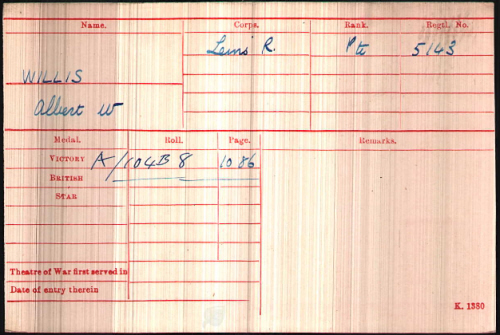 Name. Corps. Rank. Regtl. No.
Leins' R. Pte 5143
WILLIS
Albert W
Medal. Roll. Page. Remarks.
VICTORY A/104B8 1086
BRITISH
STAR
Theatre of War first served in
Date of entry therein
K. 1380